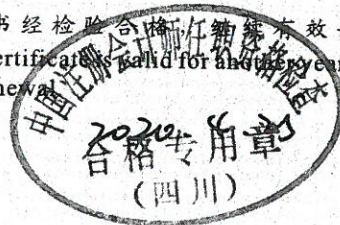 书经检验合格，继续有效一
ertificate is valid for another year
newal
中国注册会计师任职资格检查
2020
合格专用章
（四川）